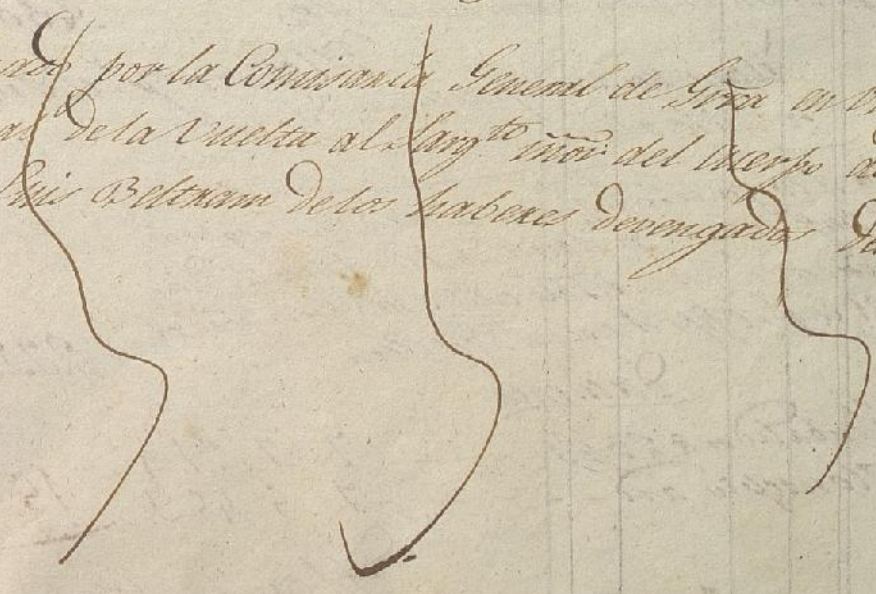 por la Comisaria General de Grra en
de la Vuelta al Sargto mor del cuerpo
Luis Beltran de los haberes devengados